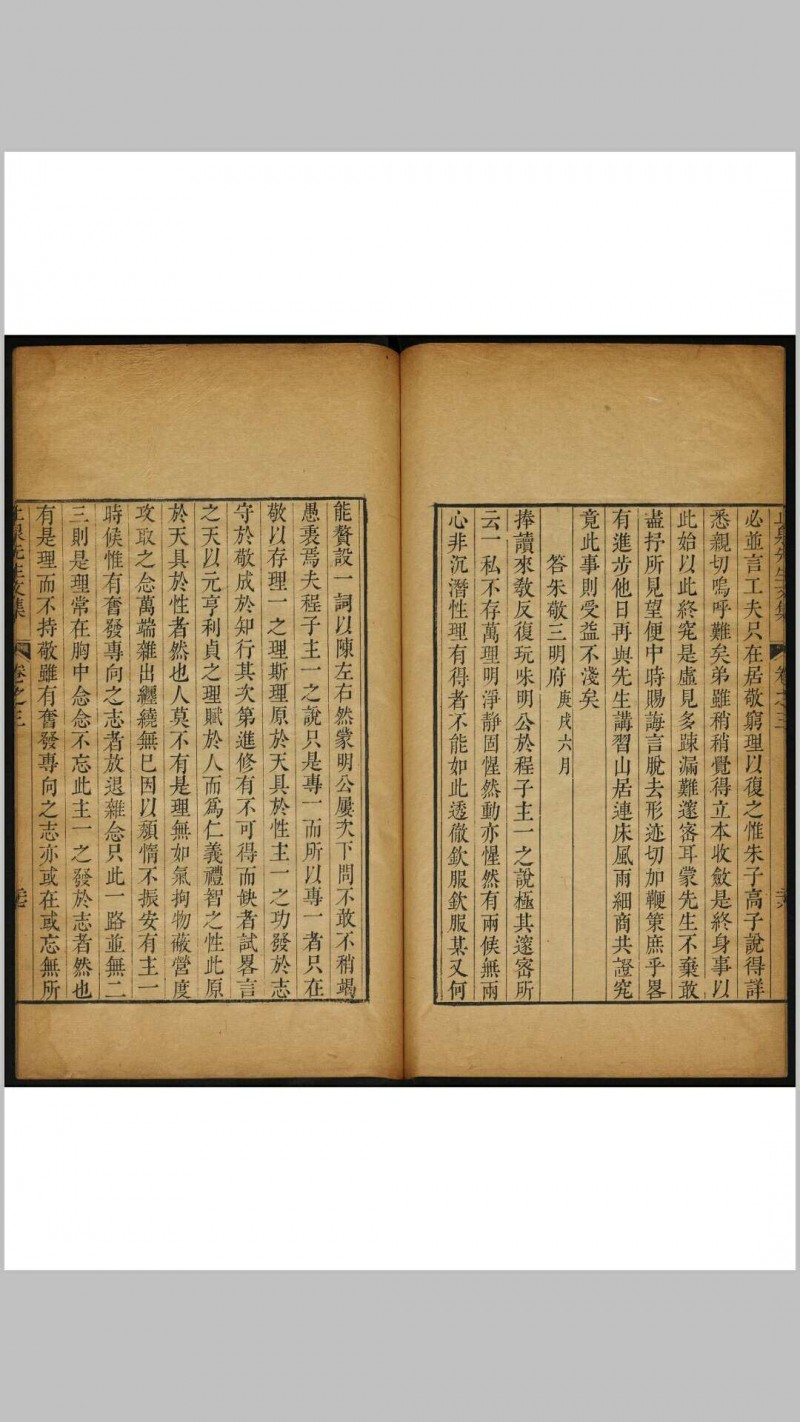 必並言工夫只在居敬窮理以復之惟朱子高子說得詳
悉親切嗚呼難矣弟雖稍稍覺得立本收斂是終身事以
此始以此終究是虛見多踈漏難邃宻耳蒙先生不棄敢
盡抒所見望便中時賜誨言脫去形迹切加鞭策庶乎畧
有進步他日再與先生講習山居連床風雨細商共證究
竟此事則受益不淺矣
答朱敬三明府庚戌六月
捧讀來敎反復玩味明公於程子主一之說極其邃宻所
云一私不存萬理明淨靜固惺然動亦惺然有兩候無兩
心非沉潛性理有得者不能如此透徹欽服欽服某又何
能贅設一詞以陳左右然蒙明公屢次下問不敢不稍竭
愚衷焉夫程子主一之說只是專一而所以專一者只在
敬以存理一之理斯理原於天具於性主一之功發於志
守於敬成於知行其次第進修有不可得而缺者試畧言
之天以元亨利貞之理賦於人而爲仁義禮智之性此原
於天具於性者然也人莫不有是理無如氣拘物蔽營度
攻取之念萬端雜出纒繞無已因以頹惰不振安有主一
時候惟有奮發專向之志者放退雜念只此一路並無二
三則是理常在胸中念念不忘此主一之發於志者然也
有是理而不持敬雖有奮發專向之志亦或在或忘無所
止泉先生文集 卷之三